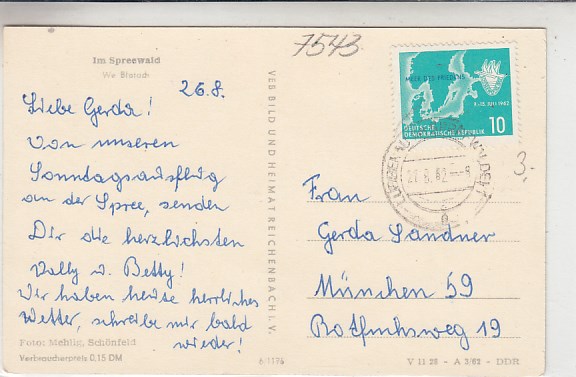 7543
Im Spreewald
26.8.
Liebe Gerda!
Von unseren
Sonntagsausflug
an der Spree, senden
Dir die herzlichsten
Wally u. Betty!
Wir haben heute herrliches
Wetter, schreibe mir bald
wieder!
Foto: Mehlig, Schönfeld
Verbraucherpreis 0,15 DM
VEB BILD UND HEIMAT REICHENBACH I. V.
MEER DES FRIEDENS
DEUTSCHE
DEMOKRATISCHE REPUBLIK
10
3.-
Frau
Gerda Sandner
München 59
Rotfuchsweg 19
V 11 28 - A 3/62 - DDR